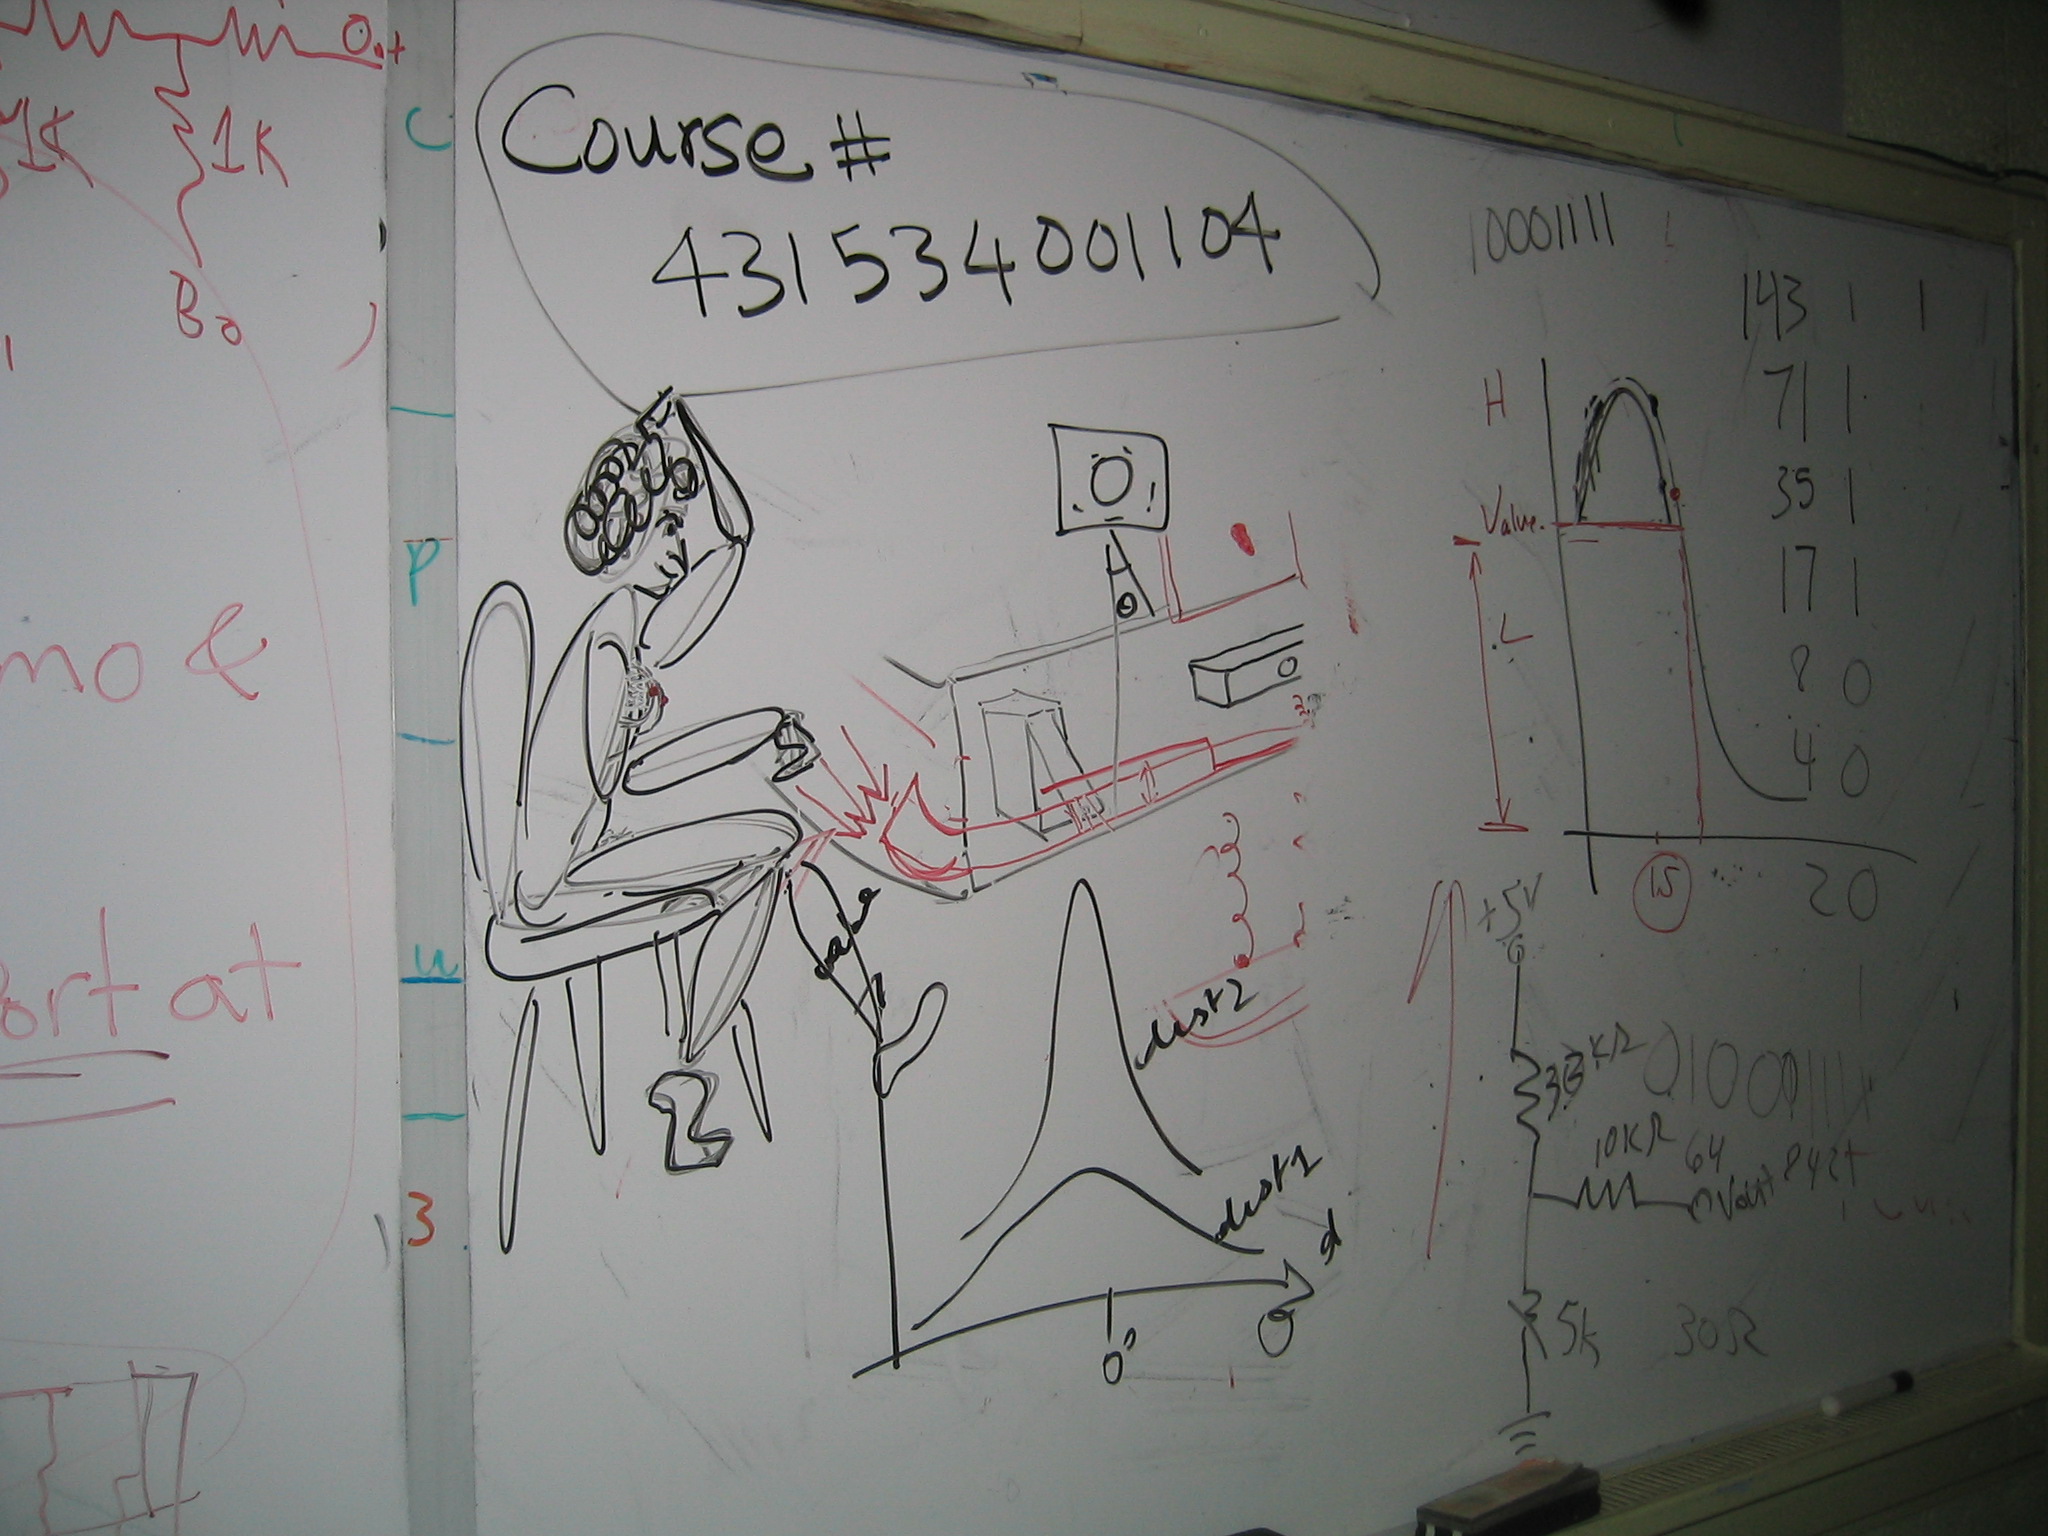 Out
1K 1K
B0
mo &
ort at
C
P
u
3
Course #
431534001104
10001111
143 1 1
71 1
35 1
17 1
8 0
4 0
H
Value
L
15
20
+5V
10KΩ
64
Vout
5k
30Ω
dist2
dist1
d
0°
Θ